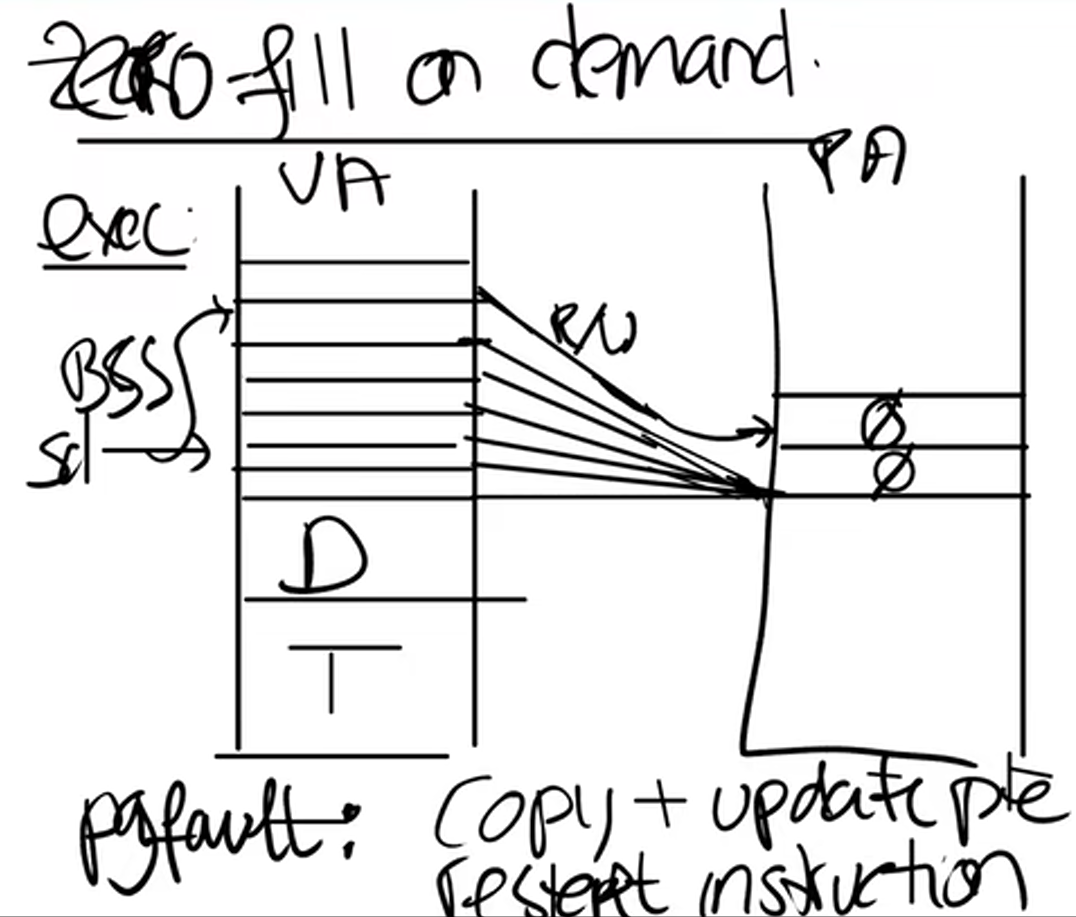 zero-fill on demand.
VA
PA
exec:
R/W
BSS
Ø
Ø
D
T
pgfault: Copy + update pte
restart instruction